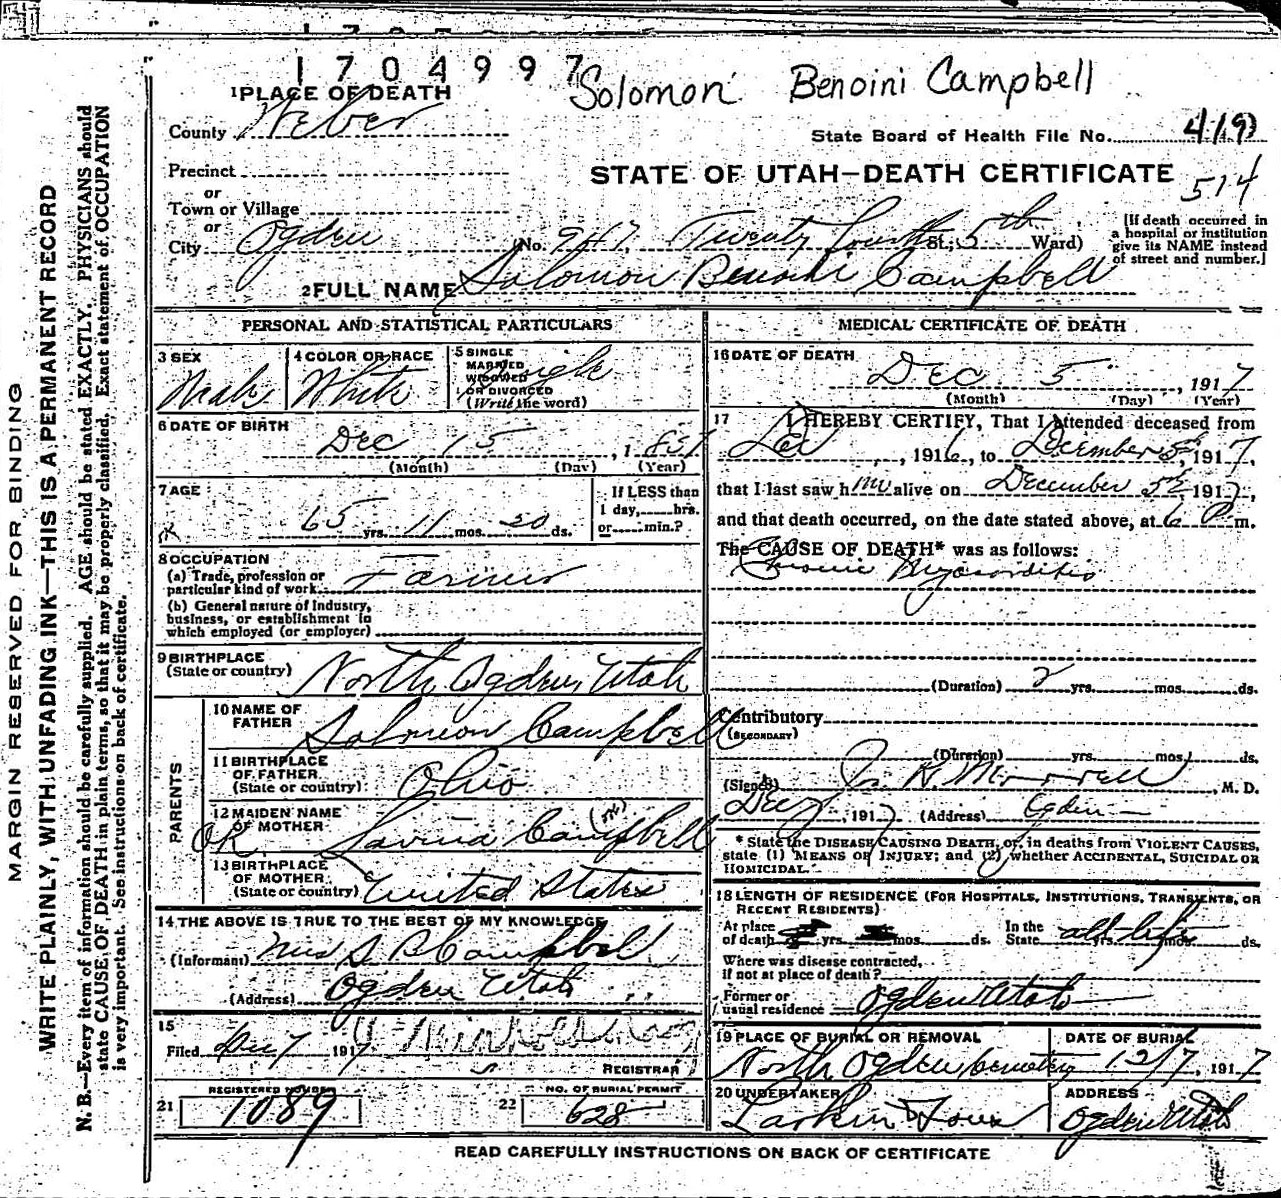 1704997
Solomon Benoini Campbell
1 PLACE OF DEATH
County Weber
State Board of Health File No. 419
Precinct
STATE OF UTAH—DEATH CERTIFICATE
514
or
Town or Village
or
City Ogden No. 947 Twenty fourth St; 5th Ward)
[If death occurred in a hospital or institution give its NAME instead of street and number.]
2 FULL NAME Solomon Benoni Campbell
PERSONAL AND STATISTICAL PARTICULARS
3 SEX Male
4 COLOR OR RACE White
5 SINGLE MARRIED WIDOWED OR DIVORCED (Write the word) Single
6 DATE OF BIRTH Dec 15, 1851
(Month) (Day) (Year)
7 AGE 65 yrs. 11 mos. 20 ds.
If LESS than 1 day, hrs. or min.?
8 OCCUPATION
(a) Trade, profession or particular kind of work Farmer
(b) General nature of Industry, business, or establishment in which employed (or employer)
9 BIRTHPLACE (State or country) North Ogden, Utah
PARENTS
10 NAME OF FATHER Solomon Campbell
11 BIRTHPLACE OF FATHER (State or country) Ohio
12 MAIDEN NAME OF MOTHER Savina Campbell
OK
13 BIRTHPLACE OF MOTHER (State or country) United States
14 THE ABOVE IS TRUE TO THE BEST OF MY KNOWLEDGE
(Informant) Mrs S B Campbell
(Address) Ogden Utah
15
Filed Dec 7 1917
REGISTRAR
REGISTERED NUMBER
21 1089
NO. OF BURIAL PERMIT
22 628
MEDICAL CERTIFICATE OF DEATH
16 DATE OF DEATH
Dec 5, 1917
(Month) (Day) (Year)
17 I HEREBY CERTIFY, That I attended deceased from
, 1916, to December 5th, 1917,
that I last saw him alive on December 5th 1917,
and that death occurred, on the date stated above, at 6 P m.
The CAUSE OF DEATH* was as follows:
Chronic Myocarditis
(Duration) 2 yrs. mos. ds.
Contributory
(SECONDARY)
(Duration) yrs. mos. ds.
(Signed) Morrell, M. D.
Dec 7, 1917 (Address) Ogden
* State the DISEASE CAUSING DEATH, or, in deaths from VIOLENT CAUSES,
state (1) MEANS OF INJURY; and (2) whether ACCIDENTAL, SUICIDAL OR
HOMICIDAL.
18 LENGTH OF RESIDENCE (FOR HOSPITALS, INSTITUTIONS, TRANSIENTS, OR
RECENT RESIDENTS)
At place of death yrs. mos. ds. In the State all life yrs. mos. ds.
Where was disease contracted,
if not at place of death?
Former or usual residence Ogden Utah
19 PLACE OF BURIAL OR REMOVAL North Ogden Cemetery
DATE OF BURIAL 12/7, 1917
20 UNDERTAKER Larkin & Sons
ADDRESS Ogden Utah
READ CAREFULLY INSTRUCTIONS ON BACK OF CERTIFICATE
MARGIN RESERVED FOR BINDING
WRITE PLAINLY, WITH UNFADING INK—THIS IS A PERMANENT RECORD
N. B.—Every item of information should be carefully supplied. AGE should be stated EXACTLY. PHYSICIANS should
state CAUSE OF DEATH in plain terms, so that it may be properly classified. Exact statement of OCCUPATION
is very important. See instructions on back of certificate.